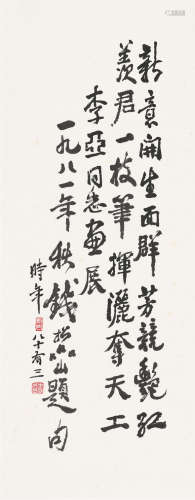 新意開生面群芳競艷紅
羨君一枝筆揮灑奪天工
李亞同志畫展
一九八一年秋錢松喦題句
時年八十有三